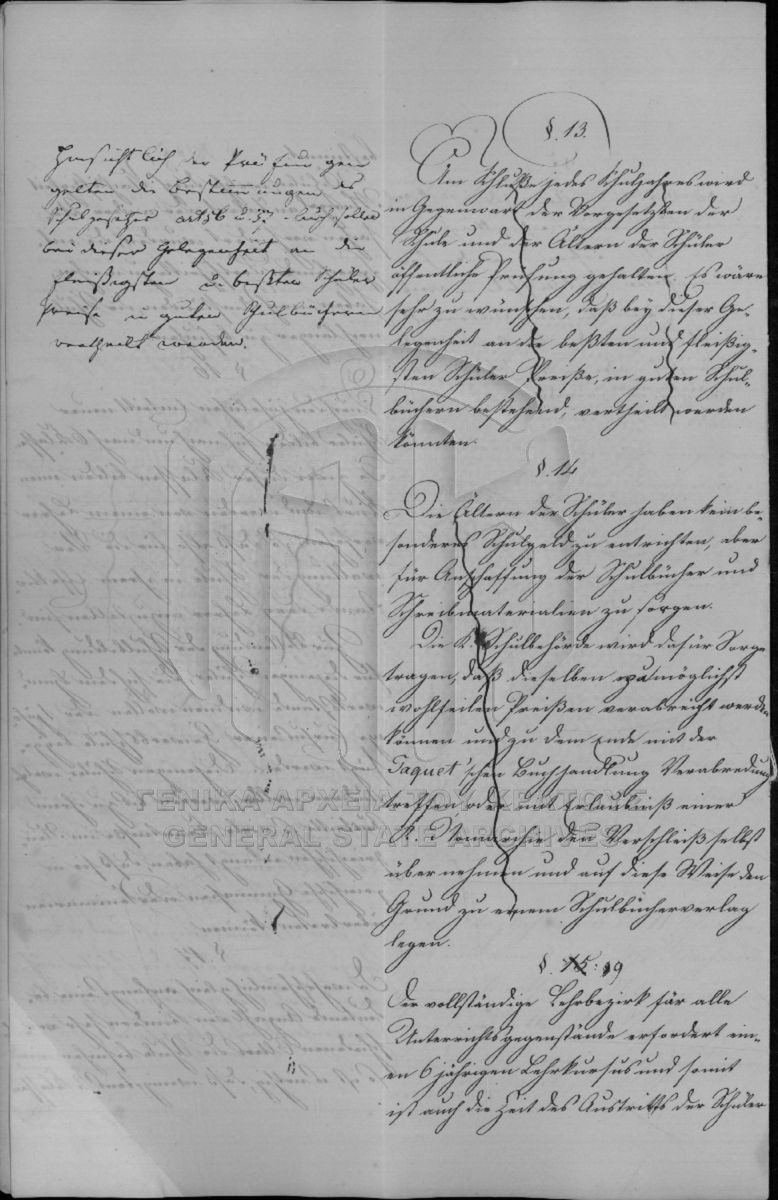 Hinsichtlich der Prüfungen
gelten die Bestimmungen des
Schulgesetzes art. 56 u. 57. Auch sollen
bei dieser Gelegenheit an die
fleißigsten u. beßten Schüler
Preise in guten Schulbüchern
vertheilt werden.
§. 13.
Am Schluße jedes Schuljahres wird
in Gegenwart der Vorgesetzten der
Schule und der Ältern der Schüler
öffentliche Prüfung gehalten. Es wäre
sehr zu wünschen, daß bey dieser Ge-
legenheit an die beßten und fleißig-
sten Schüler Preiße, in guten Schul-
büchern bestehend, vertheilt werden
könnten.
§. 14
Die Ältern der Schüler haben kein be-
sonderes Schulgeld zu entrichten, aber
für Anschaffung der Schulbücher und
Schreibmaterialien zu sorgen.
Die K. Schulbehörde wird dafür Sorge
tragen, daß dieselben zu möglichst
wohlfeilen Preißen verabreicht werden
können und zu dem Ende mit der
Jaquet'schen Buchhandlung Verabredung
treffen oder mit Erlaubniß einer
K. Nomarchie den Verschleiß selbst
übernehmen und auf diese Weise den
Grund zu einem Schulbücherverlag
legen.
§. 15. 9
Der vollständige Lehrbezirk für alle
Unterrichtsgegenstände erfordert ein-
en 6 jährigen Lehrkursus und somit
ist auch die Zeit des Austritts der Schüler
ΓΕΝΙΚΑ ΑΡΧΕΙΑ ΤΟΥ ΚΡΑΤΟΥΣ
GENERAL STATE ARCHIVES